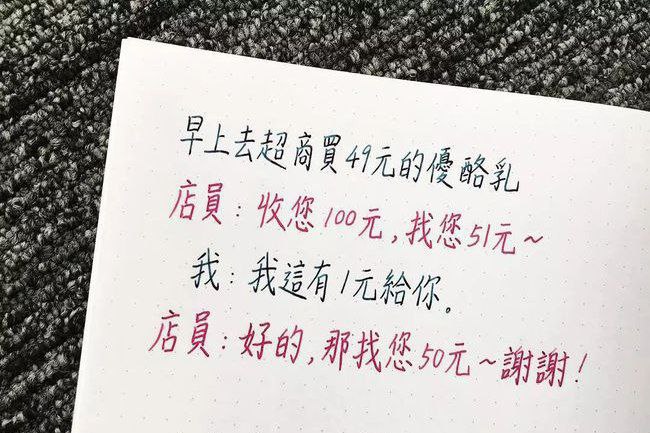 早上去超商買49元的優酪乳
店員：收您100元，找您51元～
我：我這有1元給你。
店員：好的，那找您50元～謝謝！